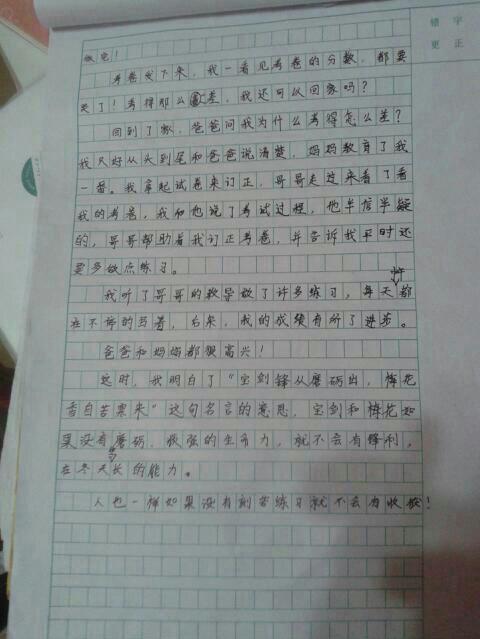 错字
更正
做完！
考卷发下来，我一看见考卷的分数，都要
哭了！考得那么差，我还可以回家吗？
回到了家，爸爸问我为什么考得怎么差？
我只好从头到尾和爸爸说清楚，妈妈教育了我
一番。我拿起试卷来订正，哥哥走过来看了看
我的考卷，我和他说了考试过程，他半信半疑
的，哥哥帮助着我订正考卷，并告诉我平时还
要多做点练习。
我听了哥哥的教导做了许多练习，每天都
在不停的写着，后来，我的成绩有所了进步。
爸爸和妈妈都很高兴！
这时，我明白了“宝剑锋从磨砺出，梅花
香自苦寒来”这句名言的意思，宝剑和梅花如
果没有磨砺，很强的生命力，就不会有锋利，
在冬天长的能力。
人也一样如果没有刻苦练习就不会有收获！